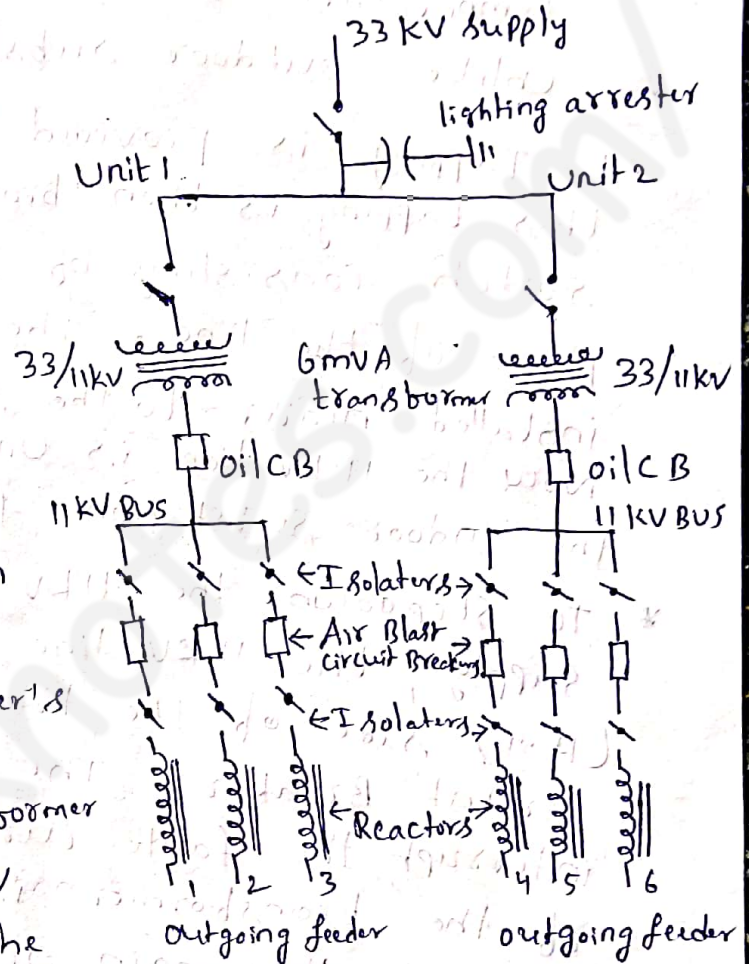 33 KV supply
lighting arrester
Unit 1
Unit 2
33/11kV
6mVA
transbormer
33/11kV
oil CB
oil CB
11 KV BUS
11 KV BUS
Isolaters
Air Blast
circuit Breckers
er's
Isolaters
former
Reactors
1 2 3
4 5 6
he
outgoing feeder
outgoing feeder
notes.com/